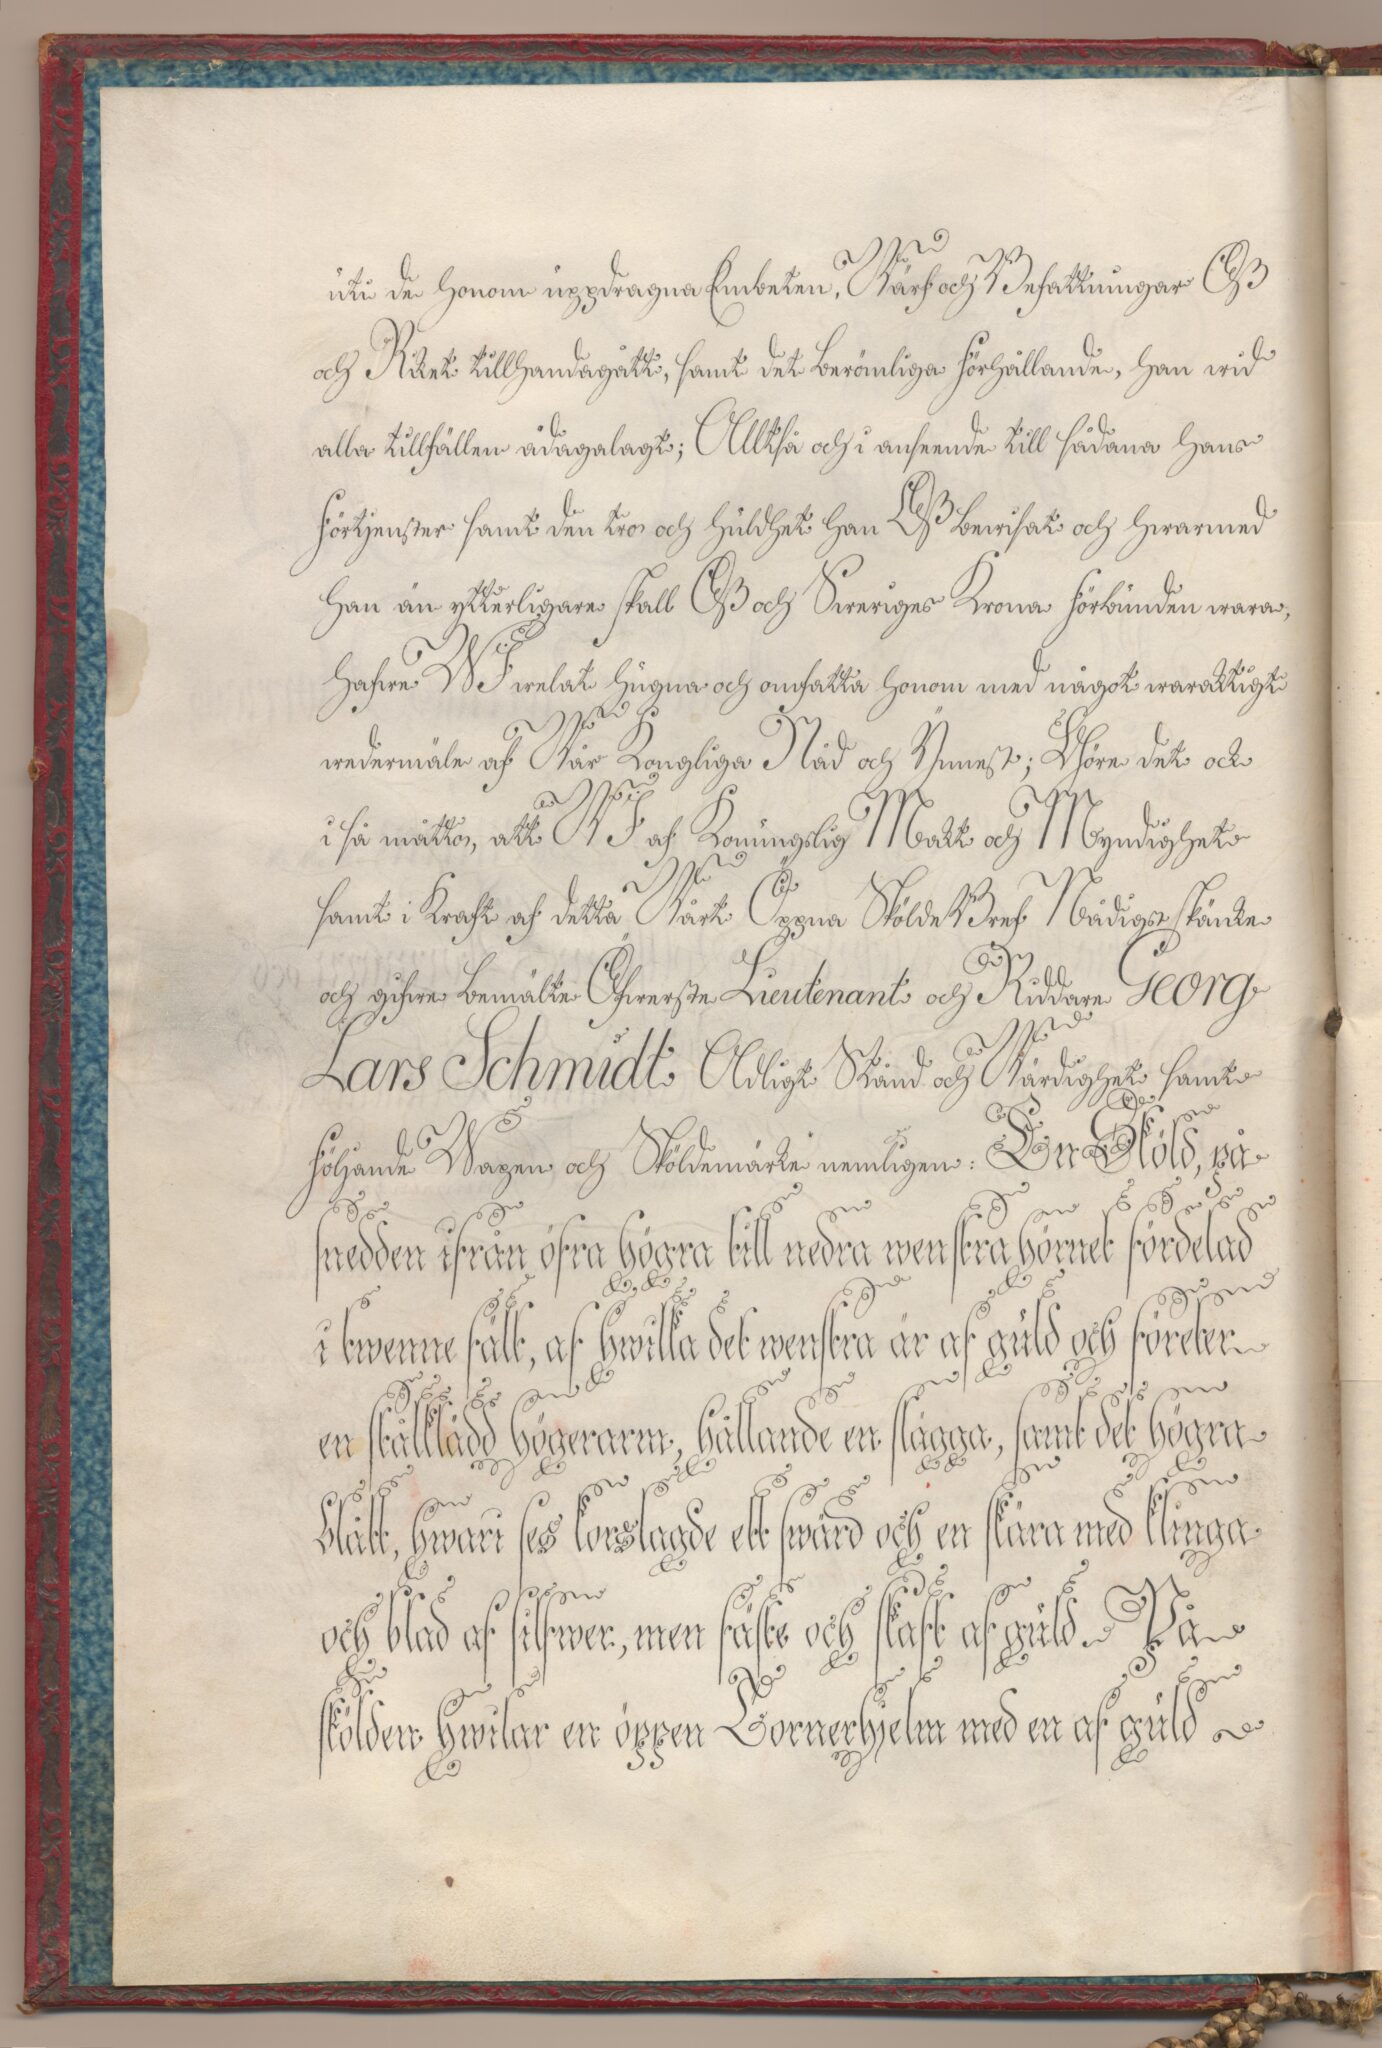 uti de honom uppdragna Embeten, Wärf och Befattningar Oß
och Riket tillhandagått, samt det berömliga förhållande, han wid
alla tillfällen ådagalagt; Alltså och i anseende till sådana hans
förtjenster samt den tro och huldhet han Oß bewisat och hwarmed
han än ytterligare skall Oß och Sweriges Krona förbunden wara,
hafwe WJ welat hugna och omfatta honom med något waraktigt
wedermäle af Wår Kongliga Nåd och Ynnest; Göre det ock
i så matto, att WJ af Konungslig Makt och Myndighet
samt i Kraft af detta Wårt Öppna Sköldebref Nådigst skänke
och gifwe bemälte Öfwerste Lieutenant och Riddare Georg
Lars Schmidt Adligt Stånd och Wärdighet samt
följande Wapen och Sköldemärke nemligen: En Sköld, på
snedden ifrån öfra högra till nedra wenstra hörnet fördelad
i twenne fält, af hwilka det wenstra är af guld och företer
en stålklädd högerarm, hållande en slägga, samt det högra
blått, hwari ses korslagde ett swärd och en skära med klinga
och blad af silfwer, men fäste och skaft af guld. På
skölden hwilar en öppen Tornerhjelm med en af guld